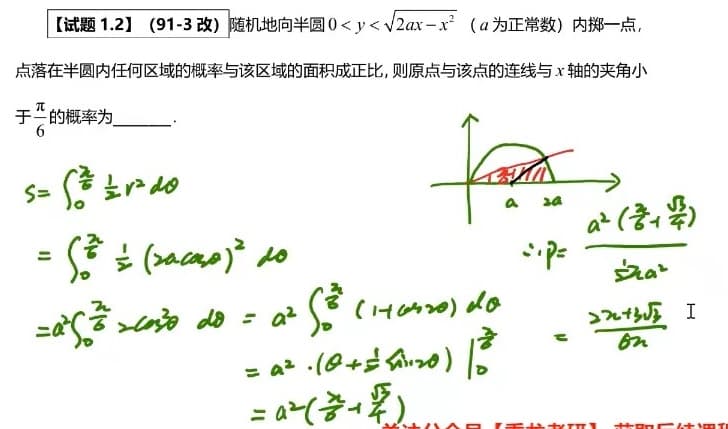 【试题 1.2】(91-3 改) 随机地向半圆 0 < y < √(2ax − x²) （a 为正常数）内掷一点，
点落在半圆内任何区域的概率与该区域的面积成正比，则原点与该点的连线与 x 轴的夹角小
于 π/6 的概率为______.
S = ∫₀^(π/6) ½ r² dθ
= ∫₀^(π/6) ½ (2a cosθ)² dθ
= a² ∫₀^(π/6) 2cos²θ dθ = a² ∫₀^(π/6) (1+cos2θ) dθ
= a² · (θ + ½ sin2θ) |₀^(π/6)
= a² (π/6 + √3/4)
a 2a
∴ P = a² (π/6 + √3/4) / ½πa²
= (2π+3√3) / 6π